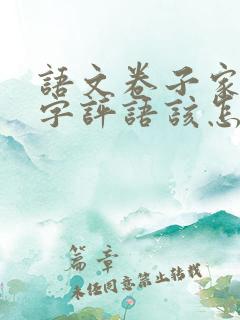 語文卷子家
字評語該怎
篇章
未經同意禁止轉載